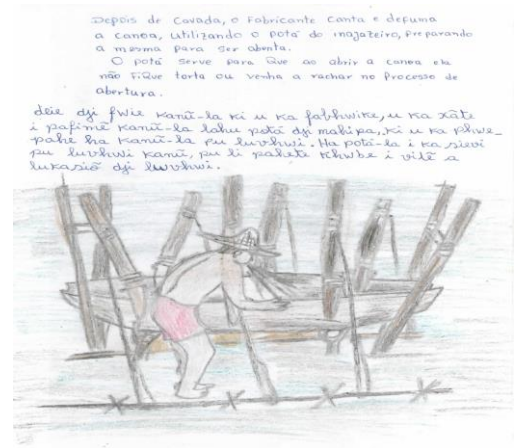 Depois de Cavada, o Fabricante Canta e defuma
a canoa, utilizando o potá do inajazeiro, Preparando
a mesma Para ser aberta.
O potá serve para que ao abrir a canoa ela
não Fique torta ou venha a rachar no Processo de
abertura.
deie dji fwie kanũ-la ki u ka fabhwike, u ka xãte
i pafimẽ kanũ-la lahu potá dji mahipa, ki u ka phwe-
pahe ha kanũ-la pu luvhwi. Ha potá-la i ka sievi
pu luvhwi kanũ, pu li pahete khwbe i vitẽ a
lukasiõ dji luvhwi.